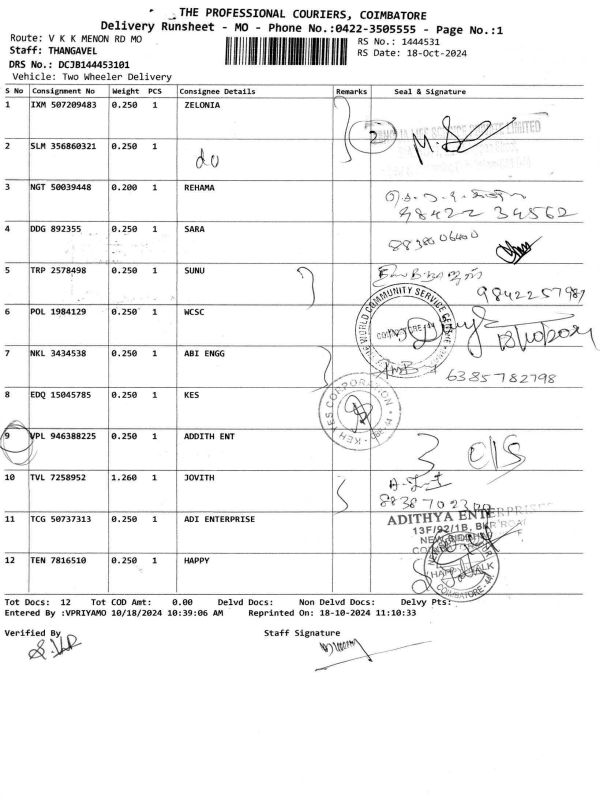 THE PROFESSIONAL COURIERS, COIMBATORE
Delivery Runsheet - MO - Phone No.:0422-3505555 - Page No.:1
Route: V K K MENON RD MO
RS No.: 1444531
Staff: THANGAVEL
RS Date: 18-Oct-2024
DRS No.: DCJB144453101
Vehicle: Two Wheeler Delivery
S No Consignment No Weight PCS Consignee Details Remarks Seal & Signature
1 IXM 507209483 0.250 1 ZELONIA
2
2 SLM 356860321 0.250 1
do
3 NGT 50039448 0.200 1 REHAMA
98422 34562
4 DDG 892355 0.250 1 SARA
5 TRP 2578498 0.250 1 SUNU
9842257987
6 POL 1984129 0.250 1 WCSC
NEW WORLD COMMUNITY SERVICE CENTRE
18/10/2024
7 NKL 3434538 0.250 1 ABI ENGG
6385782798
8 EDQ 15045785 0.250 1 KES
KEH YES CORPORATION
CBE-44
9 VPL 946388225 0.250 1 ADDITH ENT
C/S
10 TVL 7258952 1.260 1 JOVITH
11 TCG 50737313 0.250 1 ADI ENTERPRISE
ADITHYA ENTERPRISES
13F/92/1B, BKR ROAD
12 TEN 7816510 0.250 1 HAPPY
COIMBATORE
Tot Docs: 12 Tot COD Amt: 0.00 Delvd Docs: Non Delvd Docs: Delvy Pts:
Entered By :VPRIYAMO 10/18/2024 10:39:06 AM Reprinted On: 18-10-2024 11:10:33
Verified By Staff Signature